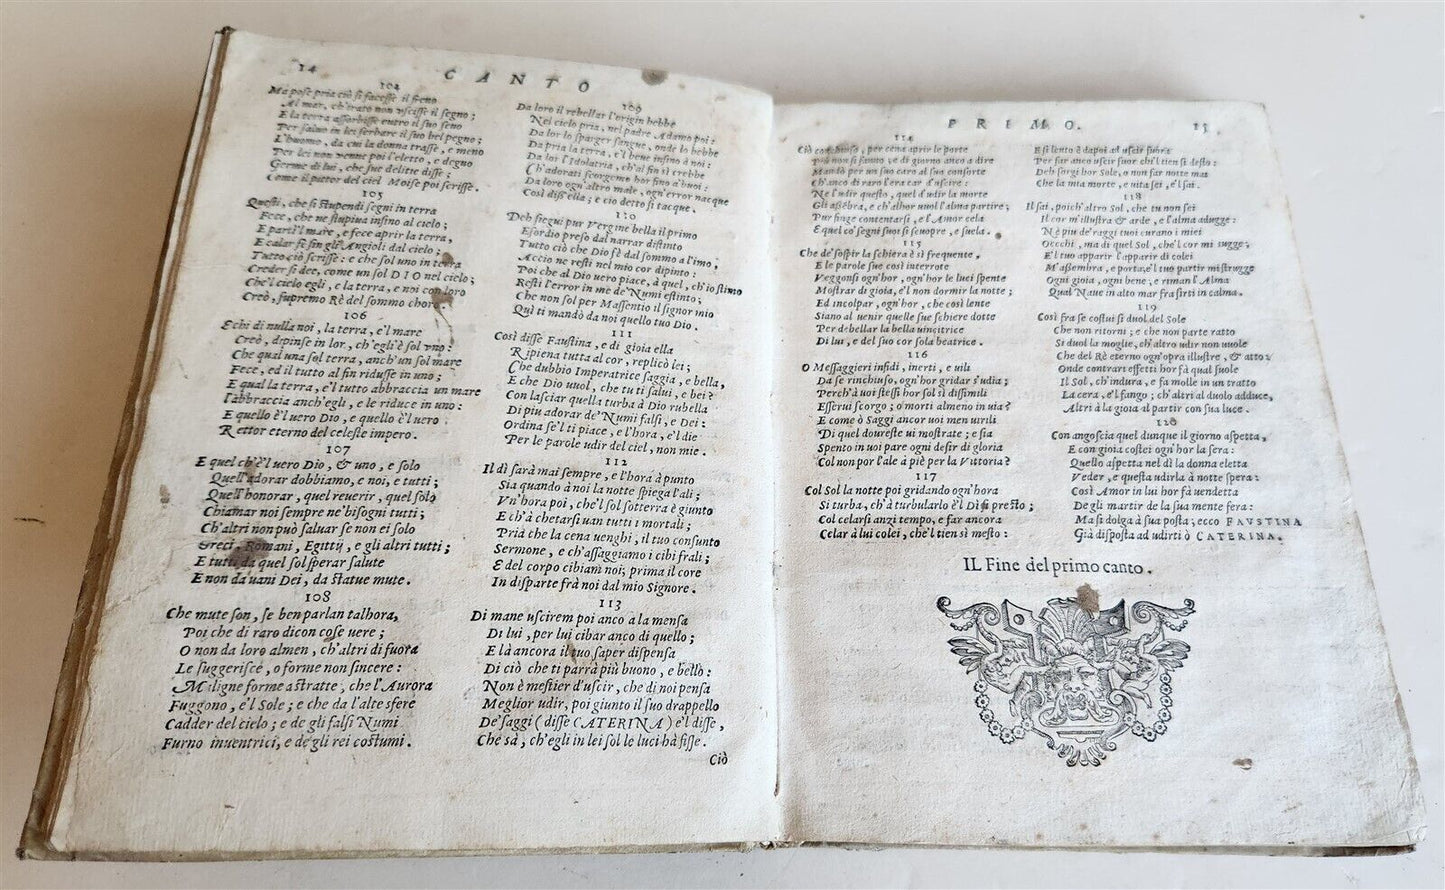 14 CANTO
102
Ma pose pria ciò si facesse il freno
Al mar, ch'irato non uscisse il segno;
E la terra assorbisse entro il suo seno
Per saluo in lei serbare il suo bel pegno;
L'huomo, da cui la donna trasse, e meno
Per lei non venne poi l'eletto, e degno
Germe di lui, che sue delitie disse;
Come il pittor del ciel Moise poi scrisse.
105
Questi, che sì stupendi segni in terra
Fece, che ne stupiua insino al cielo;
E partì'l mare, e fece aprir la terra,
E calar fè fin gli Angioli dal cielo;
Tutto ciò scrisse: e che sol uno in terra
Creder si dee, come un sol DIO nel cielo;
Che'l cielo egli, e la terra, e noi con loro
Creò, supremo Rè del sommo choro.
106
E chi di nulla noi, la terra, e'l mare
Creò, dipinse in lor, ch'egli è sol vno:
Che qual una sol terra, anch'un sol mare
Fece, ed il tutto al fin ridusse in uno;
E qual la terra, e'l tutto abbraccia un mare
L'abbraccia anch'egli, e le riduce in uno:
E quello è'l uero Dio, e quello è'l uero
Rettor eterno del celeste impero.
107
E quel ch'è'l uero Dio, & uno, e solo
Quell'adorar dobbiamo, e noi, e tutti;
Quell'honorar, quel reuerir, quel solo
Chiamar noi sempre ne' bisogni tutti;
Ch'altri non può saluar se non ei solo
Greci, Romani, Egittij, e gli altri tutti;
E tutti da quel sol sperar salute
E non da uani Dei, da statue mute.
108
Che mute son, se ben parlan talhora,
Poi che di raro dicon cose uere;
O non da loro almen, ch'altri di fuora
Le suggerisce, o forme non sincere:
Maligne forme astratte, che l'Aurora
Fuggono, e'l Sole; e che da l'alte sfere
Cadder del cielo; e de gli falsi Numi
Furno inuentrici, e de gli rei costumi.
109
Da loro il rebellar l'origin hebbe
Nel cielo pria, nel padre Adamo poi:
Da lor lo sparger sangue, onde lo bebbe
Da pria la terra, e'l bene insino à noi:
Da lor l'Idolatria, ch'al fin sì crebbe
Ch'adorati scorgeme hor fino a' buoi:
Da loro ogn'altro male, ogn'error nacque
Così diss'ella; e ciò detto si tacque.
110
Deh siegui pur Vergine bella il primo
Esordio preso dal narrar distinto
Tutto ciò che Dio fè dal sommo a l'imo,
Accio ne resti nel mio cor dipinto:
Poi che al Dio uero piace, à quel, ch'io stimo
Resti l'error in me de' Numi estinto;
Che non sol per Massentio il signor mio
Quì ti mandò da noi quello tuo Dio.
111
Così disse Faustina, e di gioia ella
Ripiena tutta al cor, replicò lei;
Che dubbio Imperatrice saggia, e bella,
E che Dio uuol, che tu ti salui, e bei?
Con lasciar quella turba à Dio rubella
Di piu adorar de' Numi falsi, e Dei:
Ordina se'l ti piace, e l'hora, e'l die
Per le parole udir del ciel, non mie.
112
Il dì sarà mai sempre, e l'hora à punto
Sia quando à noi la notte spiega l'ali;
Vn'hora poi, che'l sol sotterra è giunto
E ch'à chetarsi uan tutti i mortali;
Pria che la cena uenghi, il tuo consunto
Sermone, e ch'assaggiamo i cibi frali;
E del corpo cibiam noi; prima il core
In disparte frà noi dal mio Signore.
113
Di mane uscirem poi anco à la mensa
Di lui, per lui cibar anco di quello;
E là ancora il tuo saper dispensa
Di ciò che ti parrà più buono, e bello:
Non è mestier d'uscir, che di noi pensa
Meglior udir, poi giunto il suo drappello
De' saggi (disse CATERINA) e'l disse,
Che sà, ch'egli in lei sol le luci hà fisse.
Ciò
PRIMO. 15
114
Ciò conchiuso, per cena aprir le porte
Più non si fanno; e di giorno anco a dire
Mandò per un suo caro al suo consorte
Ch'anco di raro l'era car d'uscire:
Ne l'udir questo, quel d'udir la morte
Gli assèbra, e ch'alhor uuol l'alma partire;
Pur finge contentarsi, e l'Amor cela
E quel co' segni suoi si scuopre, e suela.
115
Che de' sospir la schiera è sì frequente,
E le parole sue così interrote
Veggonsi ogn'hor, ogn'hor le luci spente
Mostrar di gioia, e'l non dormir la notte;
Ed incolpar, ogn'hor, che così lente
Siano al uenir quelle sue schiere dotte
Per debellar la bella uincitrice
Di lui, e del suo cor sola beatrice.
116
O Messaggieri infidi, inerti, e uili
Da se rinchiuso, ogn'hor gridar s'udia;
Perch'à uoi stessi hor sol sì dissimili
Esserui scorgo; o morti almeno in uia?
E come ò Saggi ancor uoi men uirili
Di quel doureste ui mostrate; e sia
Spento in uoi pare ogni desir di gloria
Col non por l'ale à piè per la Vittoria?
117
Col Sol la notte poi gridando ogn'hora
Si turba, ch'à turbularlo è'l Dì sì presto;
Col celarsi anzi tempo, e far ancora
Celar à lui colei, che'l tien sì mesto:
E sì lento è dapoi ad uscir fuore
Per far anco uscir fuor chi'l tien sì desto:
Deh sorgi hor Sole, o non far notte mai
Che la mia morte, e uita sei, e'l sai.
118
Il sai, poich'altro Sol, che tu non sei
Il cor m'illustra & arde, e l'alma adugge:
Nè piu de' raggi tuoi curano i miei
Occhi, ma di quel Sol, che'l cor mi sugge;
E'l tuo apparir l'apparir di colei
M'assembra, e porta, e'l tuo partir mi strugge
Ogni gioia, ogni bene; e riman l'Alma
Qual Naue in alto mar fra sirti in calma.
119
Così fra se costui si duol del Sole
Che non ritorni; e che non parte ratto
Si duol la moglie, ch'altro udir non uuole
Che del Rè eterno ogn'opra illustre, & atto:
Onde contrari effetti hor fà qual suole
Il Sol, ch'indura, e fa molle in un tratto
La cera, e'l fango; ch'altri al duolo adduce,
Altri à la gioia al partir con sua luce.
120
Con angoscia quel dunque il giorno aspetta,
E con gioia costei ogn'hor la sera:
Quello aspetta nel dì la donna eletta
Veder, e questa udirla à notte spera:
Così Amor in lui hor fà uendetta
De gli martir de la sua mente fera:
Ma si dolga à sua posta; ecco FAVSTINA
Già disposta ad udirti ò CATERINA.
IL Fine del primo canto.